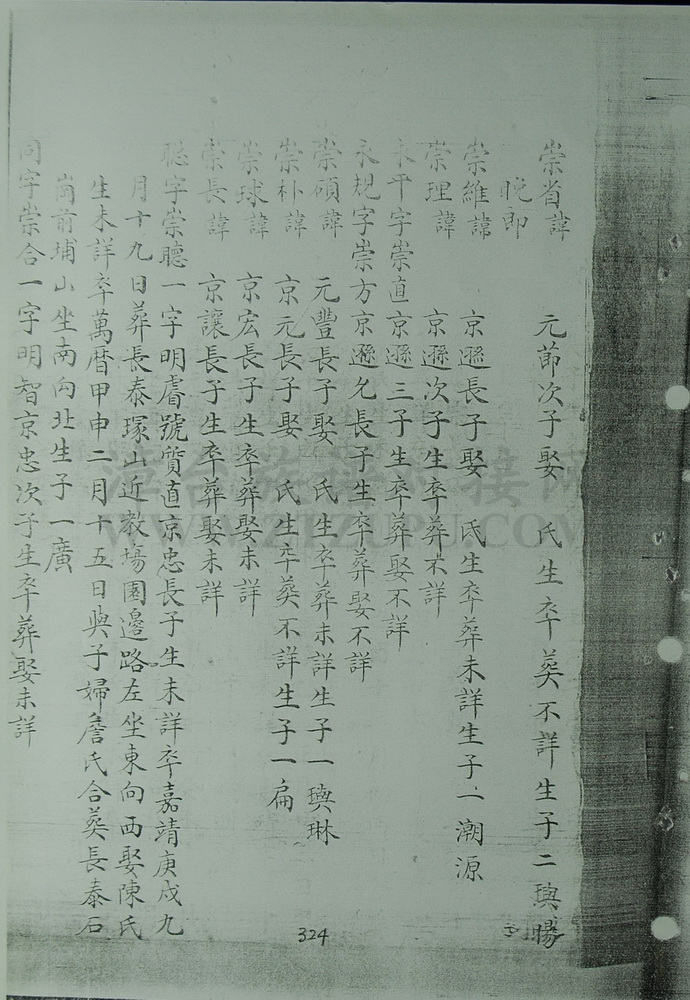 崇省諱　元節次子娶　氏生卒葬不詳生子二璵暘
晚郎
崇維諱　京遜長子娶　氏生卒葬未詳生子一潮源
崇理諱　京遜次子生卒葬不詳
永平字崇直京遜三子生卒葬娶不詳
永規字崇方京遜允長子生卒葬娶不詳
崇碩諱　元豐長子娶　氏生卒葬未詳生子一璵琳
崇朴諱　京元長子娶　氏生卒葬不詳生子一扁
崇球諱　京宏長子生卒葬娶未詳
崇長諱　京讓長子生卒葬娶未詳
聡字崇聽一字明睿號質直京忠長子生未詳卒嘉靖庚戌九
月十九日葬長泰塚山近教場園邊路左坐東向西娶陳氏
生未詳卒萬曆甲申二月十五日與子婦詹氏合葬長泰石
崗前埔山坐南向北生子一廣
同字崇合一字明智京忠次子生卒葬娶未詳
324
WWW.ZTZUPU.COM